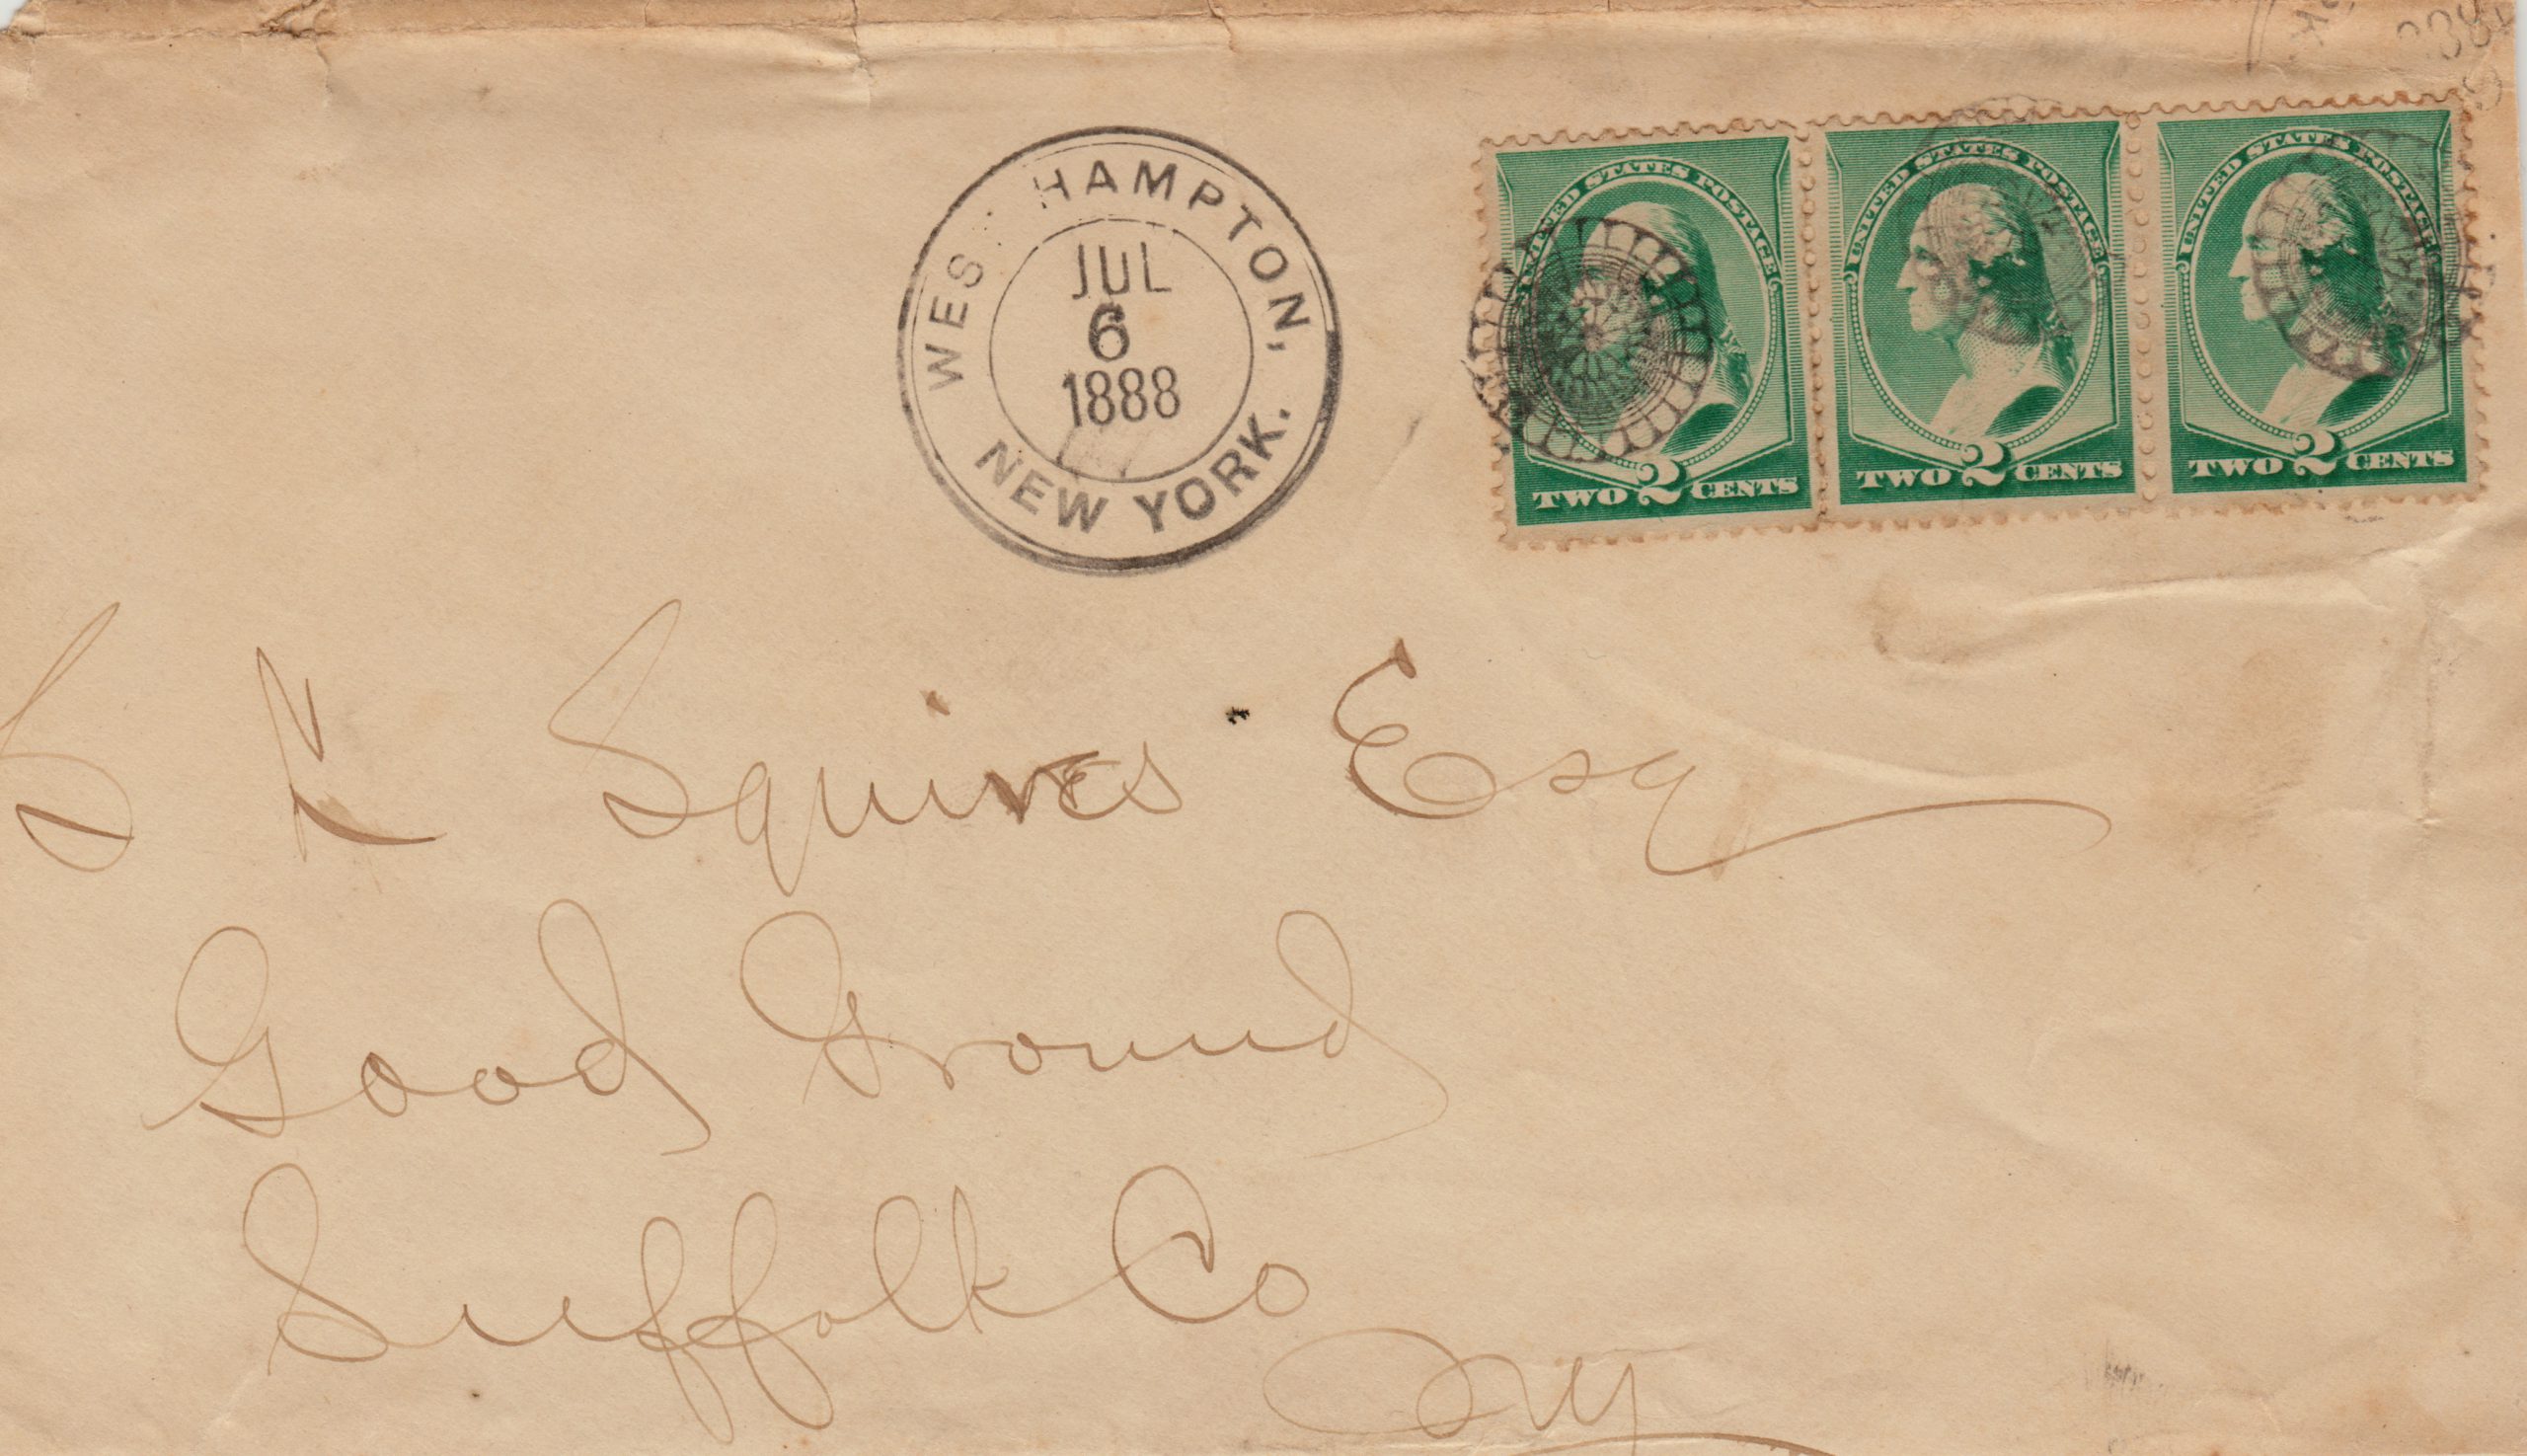 WES HAMPTON,
JUL
6
1888
NEW YORK.
UNITED STATES POSTAGE
TWO 2 CENTS
UNITED STATES POSTAGE
TWO 2 CENTS
UNITED STATES POSTAGE
TWO 2 CENTS
S Squires Esq
Good Ground
Suffolk Co
NY